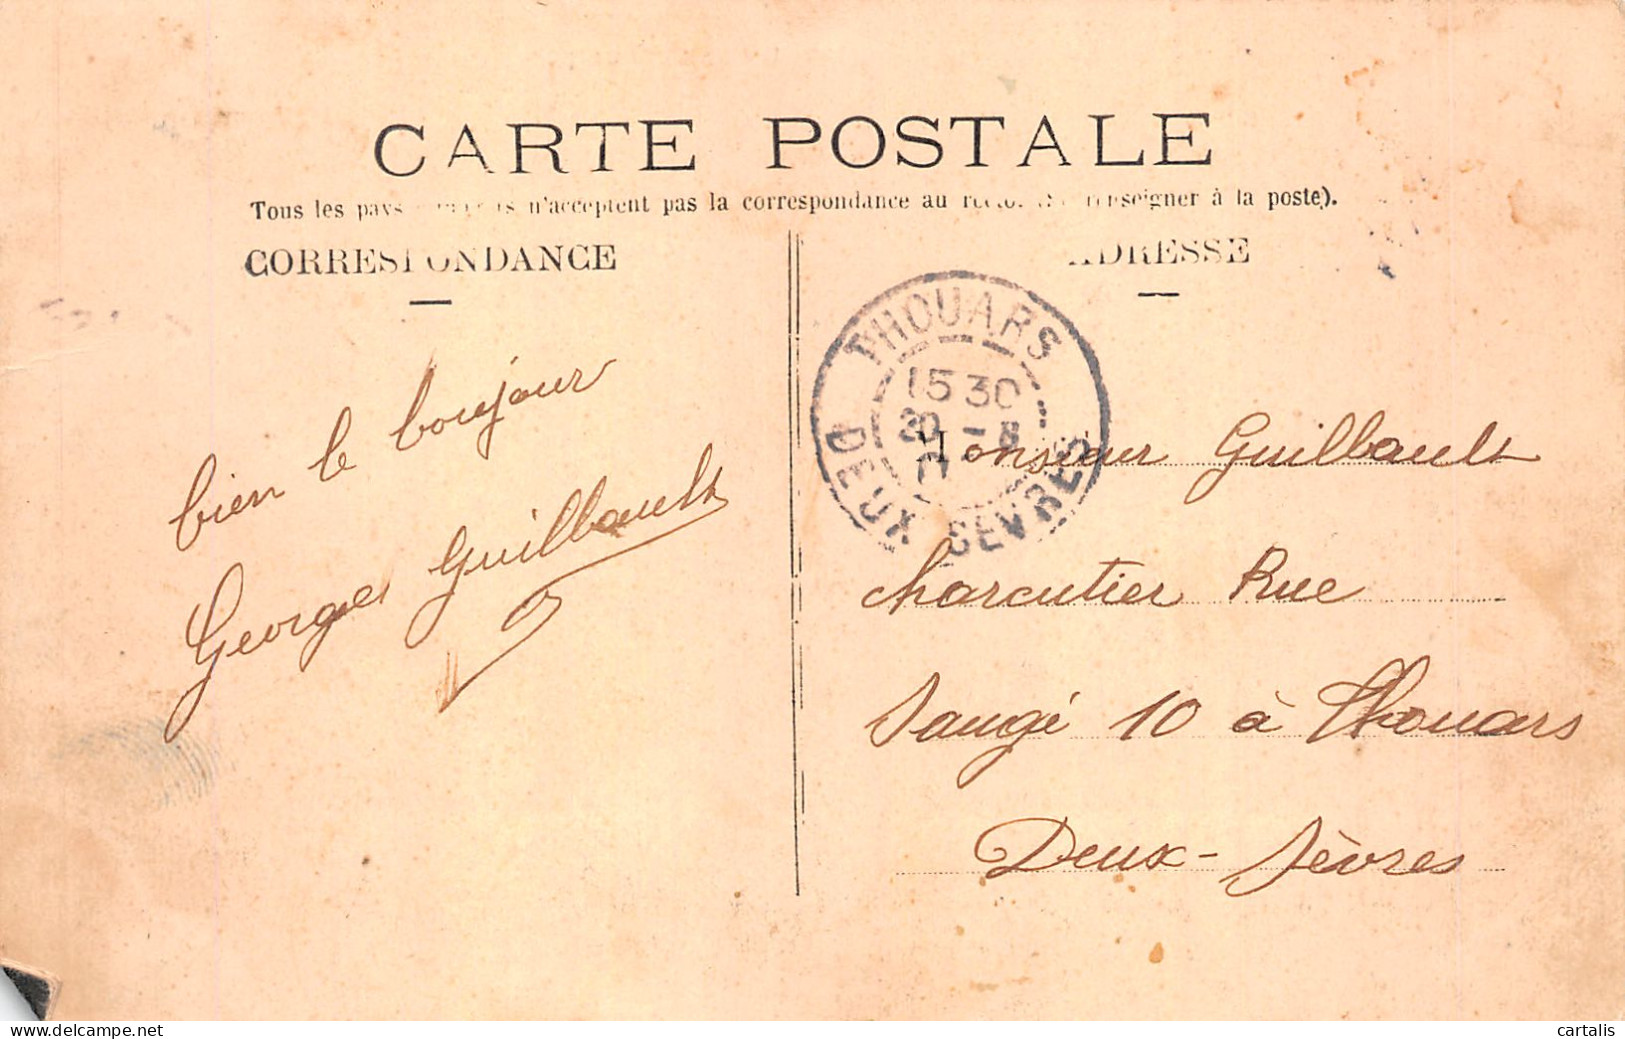 CARTE POSTALE
Tous les pays n'acceptent pas la correspondance au recto (Se renseigner à la poste).
CORRESPONDANCE
ADRESSE
THOUARS
15 30
20 - 8
DEUX SEVRES
bien le bonjour
Georges Guilbault
Monsieur Guilbault
charcutier Rue
Saugé 10 à Thouars
Deux-Sèvres
delcampe.net
cartalis